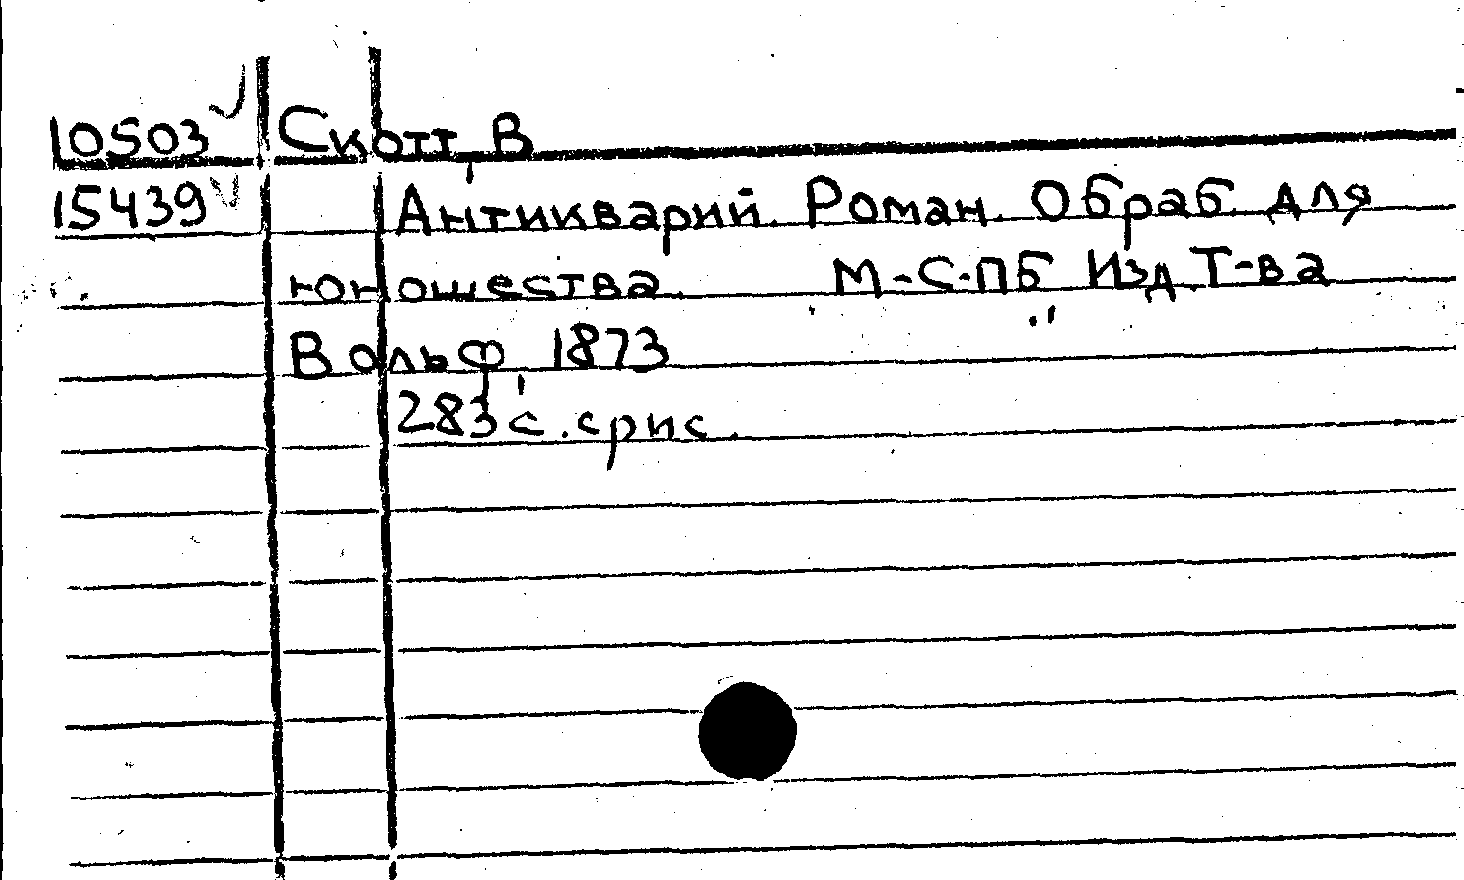 10503 Скотт, В
15439 Антикварий. Роман. Обраб. для
юношества. М-С-ПБ Изд. Т-ва
Вольф, 1873
283 с. с рис.